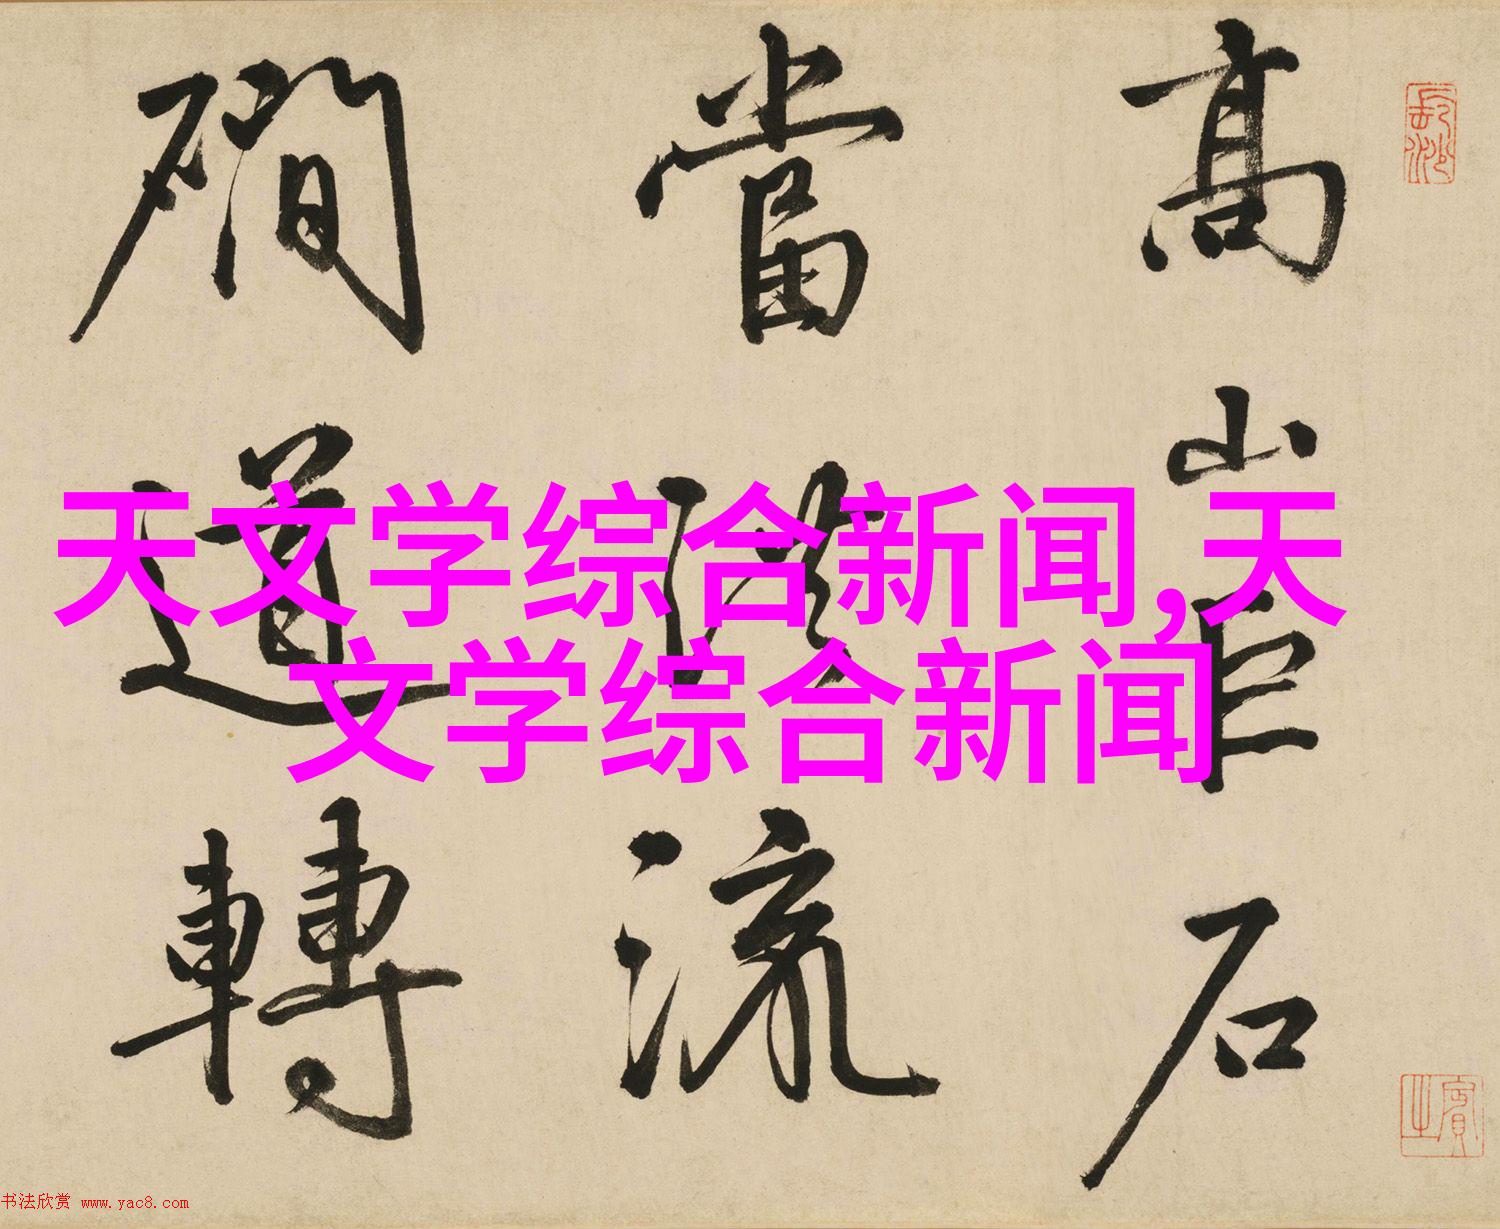 高山巨石
當流
磵道轉
天文学综合新闻,天
文学综合新闻
長沙
賓之
书法欣赏 www.yac8.com